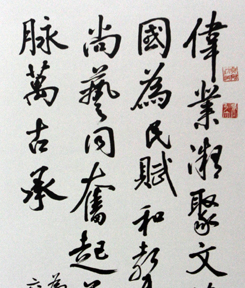 偉業凝聚文
國為民賦和
尚藝同奮起
脈萬古承